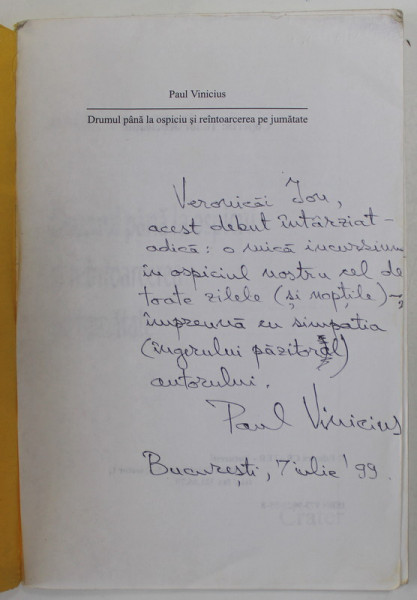 Paul Vinicius
Drumul până la ospiciu şi reîntoarcerea pe jumătate
Veronicăi Ion,
acest debut întârziat -
adică: o mică incursiune
în ospiciul nostru cel de
toate zilele (și nopțile) -,
împreună cu simpatia
(îngerului păzitor al)
autorului.
Paul Vinicius
București, 7 iulie '99